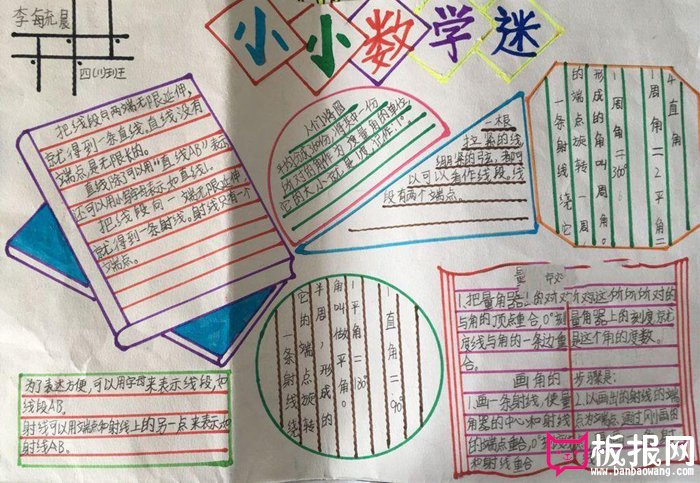 李毓晨
四(11)班王
小小数学迷
把线段向两端无限延伸,
就得到一条直线。直线没有
端点是无限长的。
直线除了可以用"直线AB"表示
还可以用小写字母表示如直线l。
把线段向一端无限延伸
就得到一条射线。射线只有一个
端点。
人们将圆
平均分成360份,将其中一份
所对的角作为度量角的单位,
它的大小就是1度,记作:1°。
一根
拉紧的线,
绷紧的弦,都可
以可以看作线段。线
段有两个端点。
一条射线绕它
的端点旋转一周
形成的角叫周角。
1周角=360°
1周角=2平角=
4直角
为了表达方便,可以用字母来表示线段,如
线段AB。
射线可以用端点和射线上的另一点来表示如
射线AB。
一条射线绕
它的端点旋转
半周,形成的
角叫做平角。
1平角=180°
1直角=90°
1.把量角器
与角的顶点重合,0°刻
度线与角的一条边重
合。
量角器上的刻度就
是这个角的度数。
画角的步骤是:
1.画一条射线,使量
角器的中心和射线
的端点重合,0°
和射线重合
2.以画出的射线的端
点为端点,通过刚画的
板报网
www.banbaowang.com